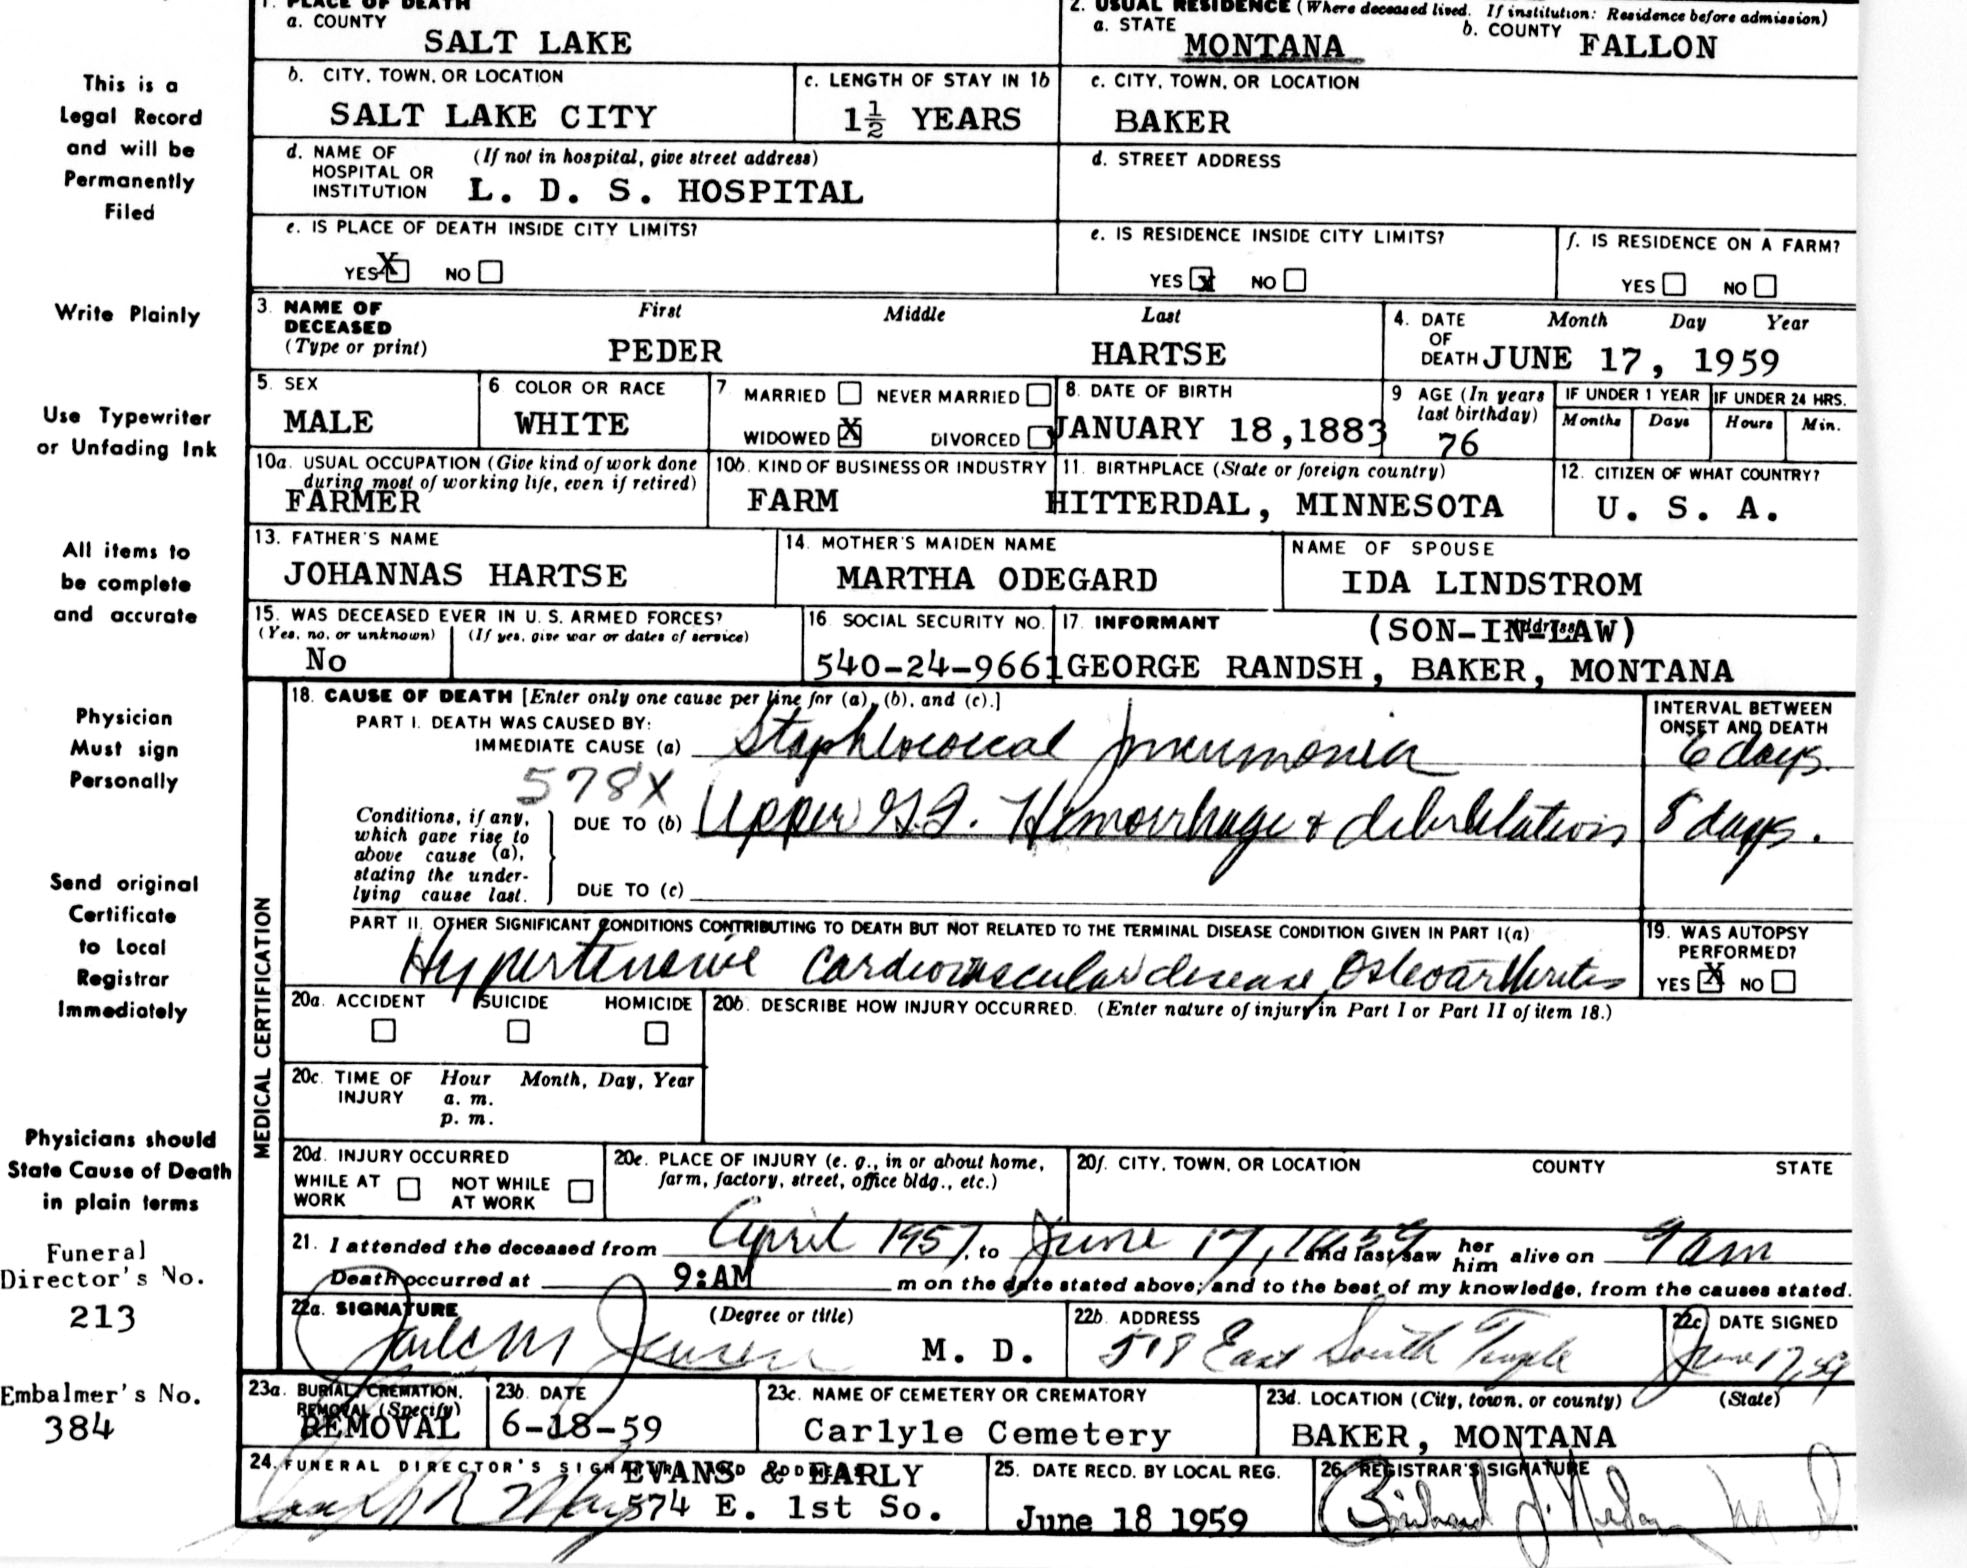 1. PLACE OF DEATH
a. COUNTY
SALT LAKE
2. USUAL RESIDENCE (Where deceased lived. If institution: Residence before admission)
a. STATE MONTANA b. COUNTY FALLON
b. CITY, TOWN, OR LOCATION
SALT LAKE CITY
c. LENGTH OF STAY IN 1b
1½ YEARS
c. CITY, TOWN, OR LOCATION
BAKER
d. NAME OF HOSPITAL OR INSTITUTION (If not in hospital, give street address)
L. D. S. HOSPITAL
d. STREET ADDRESS
e. IS PLACE OF DEATH INSIDE CITY LIMITS?
YES X NO
e. IS RESIDENCE INSIDE CITY LIMITS?
YES X NO
f. IS RESIDENCE ON A FARM?
YES NO
This is a
Legal Record
and will be
Permanently
Filed
Write Plainly
3. NAME OF DECEASED (Type or print) First Middle Last
PEDER HARTSE
4. DATE OF DEATH Month Day Year
JUNE 17, 1959
Use Typewriter
or Unfading Ink
5. SEX
MALE
6 COLOR OR RACE
WHITE
7. MARRIED NEVER MARRIED
WIDOWED X DIVORCED
8. DATE OF BIRTH
JANUARY 18,1883
9 AGE (In years last birthday)
76
IF UNDER 1 YEAR IF UNDER 24 HRS.
Months Days Hours Min.
10a. USUAL OCCUPATION (Give kind of work done during most of working life, even if retired)
FARMER
10b. KIND OF BUSINESS OR INDUSTRY
FARM
11. BIRTHPLACE (State or foreign country)
HITTERDAL, MINNESOTA
12. CITIZEN OF WHAT COUNTRY?
U. S. A.
All items to
be complete
and accurate
13. FATHER'S NAME
JOHANNAS HARTSE
14. MOTHER'S MAIDEN NAME
MARTHA ODEGARD
NAME OF SPOUSE
IDA LINDSTROM
15. WAS DECEASED EVER IN U. S. ARMED FORCES?
(Yes, no, or unknown) (If yes, give war or dates of service)
No
16. SOCIAL SECURITY NO.
540-24-9661
17. INFORMANT Address
(SON-IN-LAW)
GEORGE RANDSH, BAKER, MONTANA
Physician
Must sign
Personally
MEDICAL CERTIFICATION
18. CAUSE OF DEATH [Enter only one cause per line for (a), (b), and (c).]
PART I. DEATH WAS CAUSED BY:
IMMEDIATE CAUSE (a) Staphlococcal pneumonia
INTERVAL BETWEEN ONSET AND DEATH
6 days.
578X
Conditions, if any, which gave rise to above cause (a), stating the underlying cause last.
DUE TO (b) Upper G.I. Hemorrhage & debilitation 8 days.
DUE TO (c)
Send original
Certificate
to Local
Registrar
Immediately
PART II. OTHER SIGNIFICANT CONDITIONS CONTRIBUTING TO DEATH BUT NOT RELATED TO THE TERMINAL DISEASE CONDITION GIVEN IN PART I(a)
Hypertensive Cardiovascular disease, Osteoarthritis
19. WAS AUTOPSY PERFORMED?
YES X NO
20a. ACCIDENT SUICIDE HOMICIDE
20b. DESCRIBE HOW INJURY OCCURRED. (Enter nature of injury in Part I or Part II of item 18.)
20c. TIME OF INJURY Hour Month, Day, Year
a. m.
p. m.
Physicians should
State Cause of Death
in plain terms
20d. INJURY OCCURRED
WHILE AT WORK NOT WHILE AT WORK
20e. PLACE OF INJURY (e. g., in or about home, farm, factory, street, office bldg., etc.)
20f. CITY, TOWN, OR LOCATION COUNTY STATE
21. I attended the deceased from April 1957, to June 17, 1959 and last saw her him alive on 9 am
Death occurred at 9:AM m on the date stated above; and to the best of my knowledge, from the causes stated.
Funeral
Director's No.
213
22a. SIGNATURE (Degree or title)
Jensen M. D.
22b. ADDRESS
518 East South Temple
22c. DATE SIGNED
June 17, 59
Embalmer's No.
384
23a. BURIAL, CREMATION, REMOVAL (Specify)
REMOVAL
23b. DATE
6-18-59
23c. NAME OF CEMETERY OR CREMATORY
Carlyle Cemetery
23d. LOCATION (City, town, or county) (State)
BAKER, MONTANA
24. FUNERAL DIRECTOR'S SIGNATURE AND ADDRESS
EVANS & EARLY
574 E. 1st So.
25. DATE RECD. BY LOCAL REG.
June 18 1959
26. REGISTRAR'S SIGNATURE